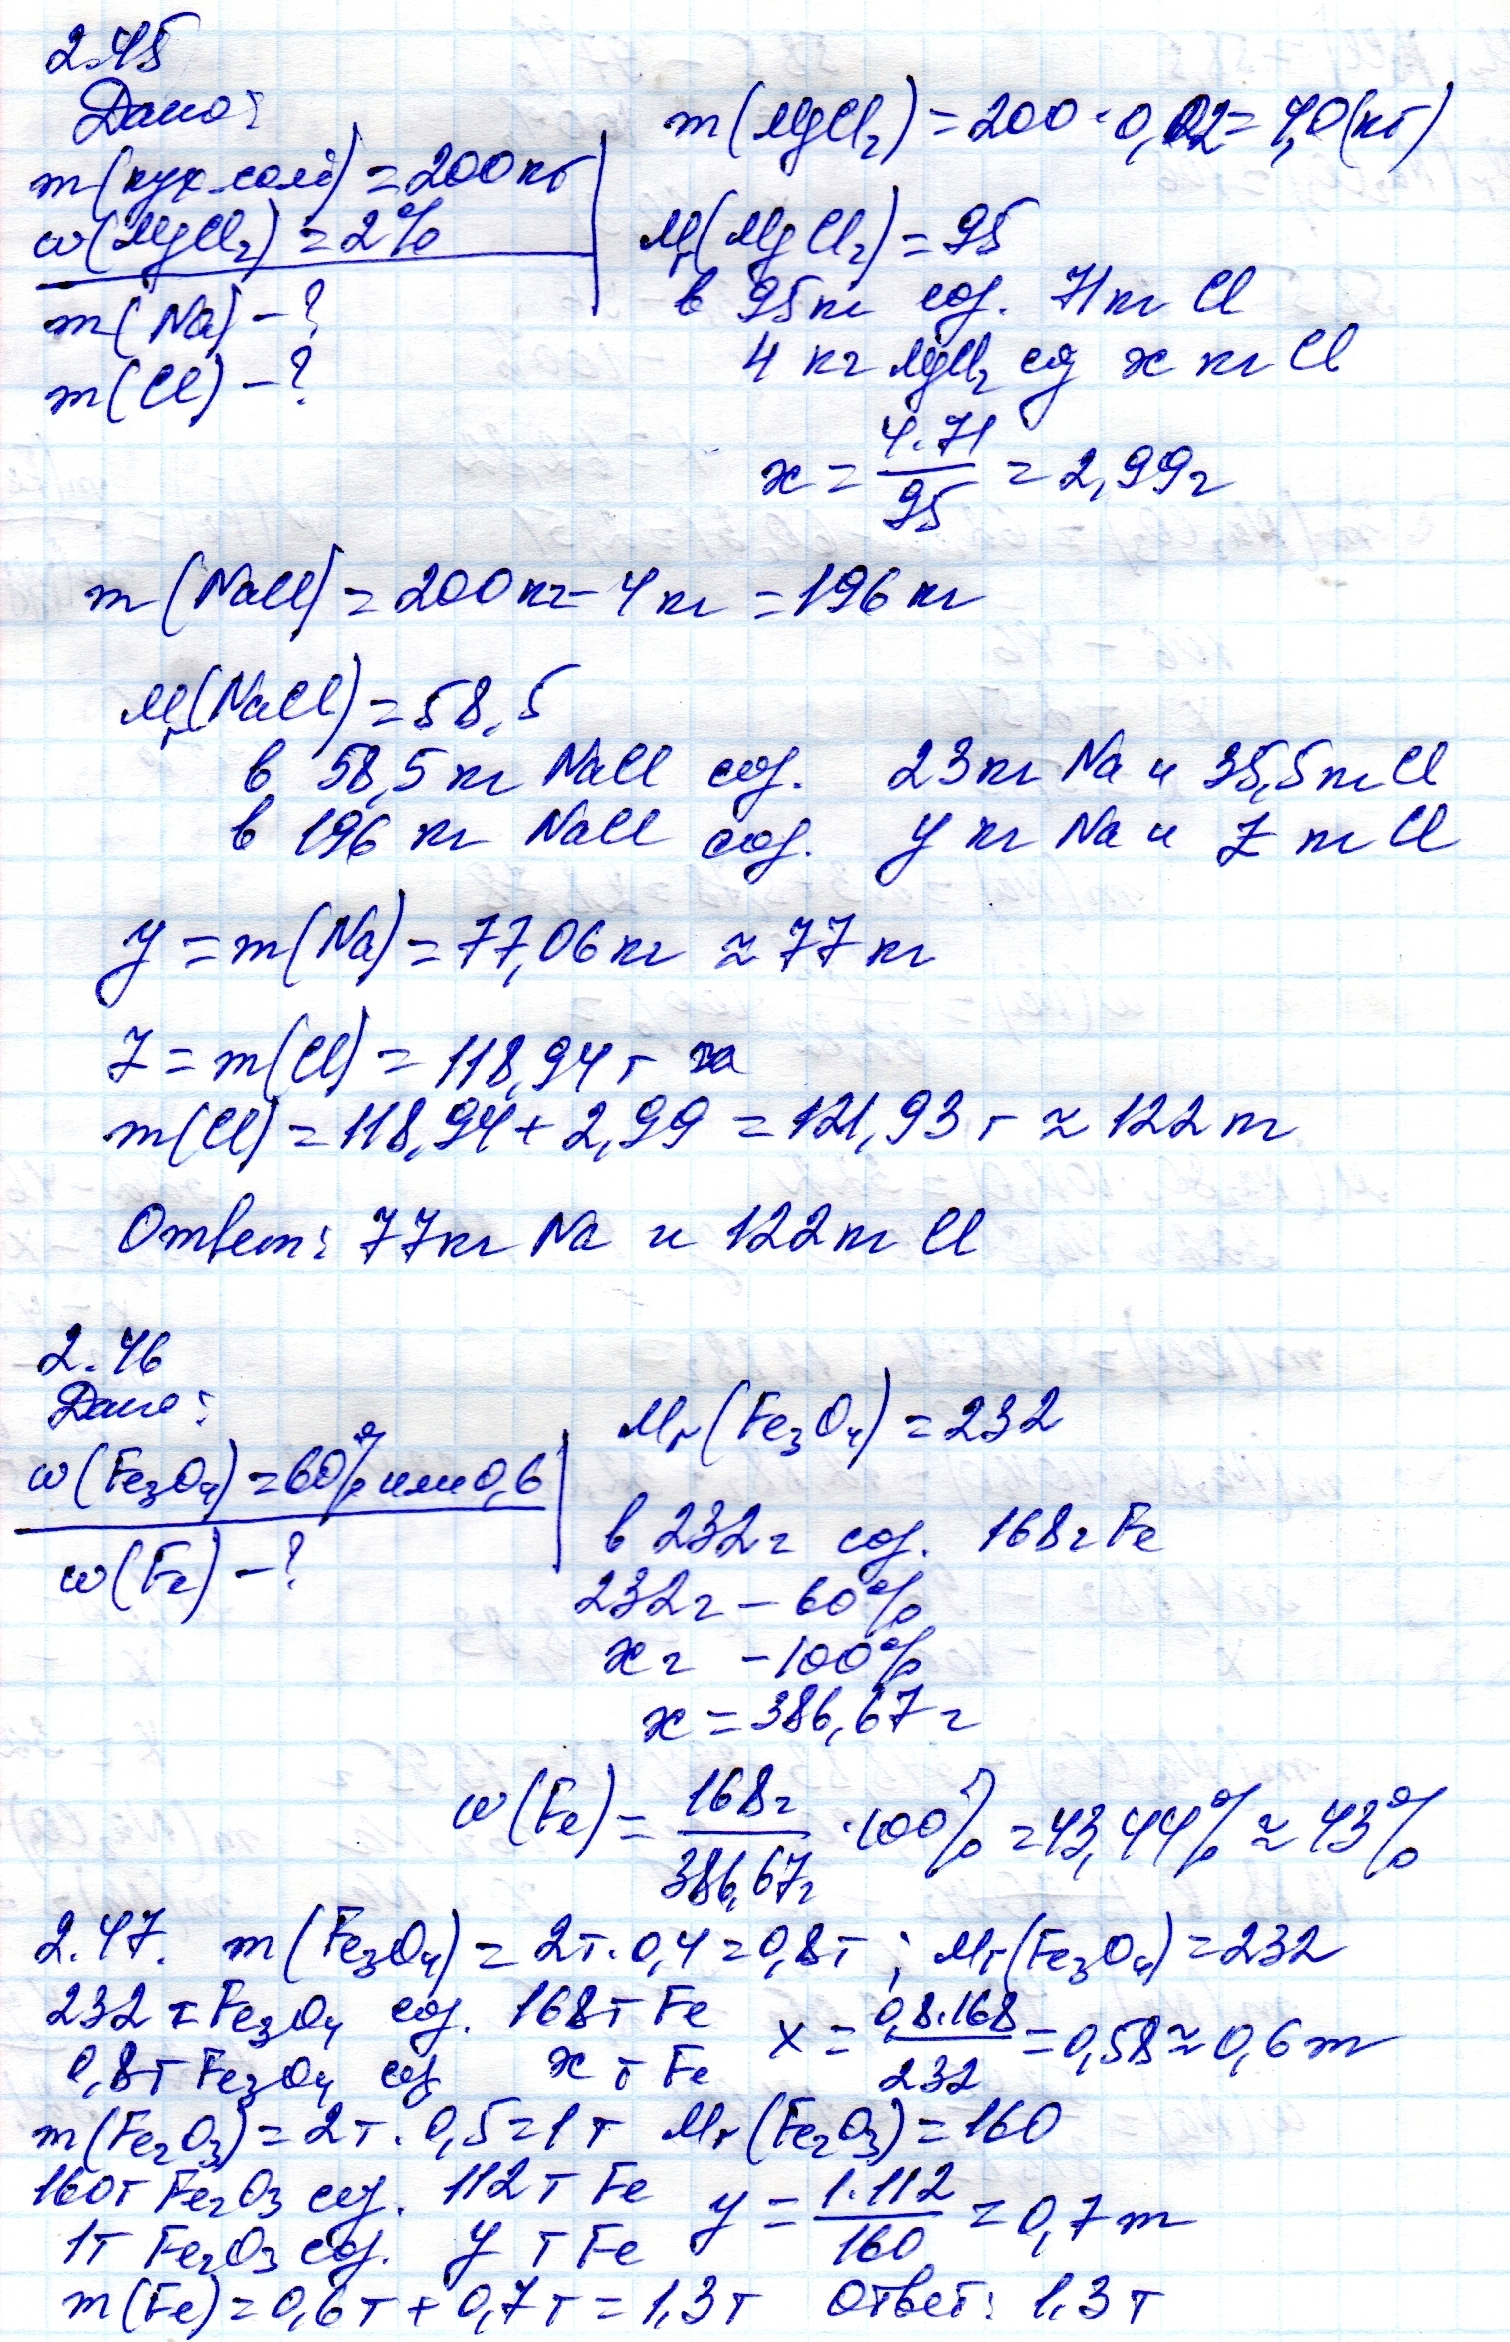 2.45
Дано:
m(кух.соли) = 200кг
w(MgCl₂) = 2%
m(Na) – ?
m(Cl) – ?
m(MgCl₂) = 200 · 0,02 = 4,0(кг)
Mr(MgCl₂) = 95
в 95кг сод. 71кг Cl
4 кг MgCl₂ сод x кг Cl
x = 4·71/95 = 2,99г
m(NaCl) = 200кг – 4кг = 196кг
Mr(NaCl) = 58,5
в 58,5кг NaCl сод. 23кг Na и 35,5кг Cl
в 196 кг NaCl сод. y кг Na и z кг Cl
y = m(Na) = 77,06кг ≈ 77кг
z = m(Cl) = 118,94г
m(Cl) = 118,94 + 2,99 = 121,93 г ≈ 122 кг
Ответ: 77кг Na и 122кг Cl
2.46
Дано:
w(Fe₃O₄) = 60% или 0,6
w(Fe) – ?
Mr(Fe₃O₄) = 232
в 232г сод. 168г Fe
232г – 60%
xг – 100%
x = 386,67г
w(Fe) = 168г/386,67г · 100% = 43,44% ≈ 43%
2.47. m(Fe₃O₄) = 2т · 0,4 = 0,8т ; Mr(Fe₃O₄) = 232
232 т Fe₃O₄ сод. 168т Fe
0,8т Fe₃O₄ сод x т Fe
x = 0,8·168/232 = 0,58 ≈ 0,6 т
m(Fe₂O₃) = 2т · 0,5 = 1т Mr(Fe₂O₃) = 160
160т Fe₂O₃ сод. 112т Fe
1т Fe₂O₃ сод. y т Fe
y = 1·112/160 = 0,7 т
m(Fe) = 0,6т + 0,7т = 1,3т Ответ: 1,3т